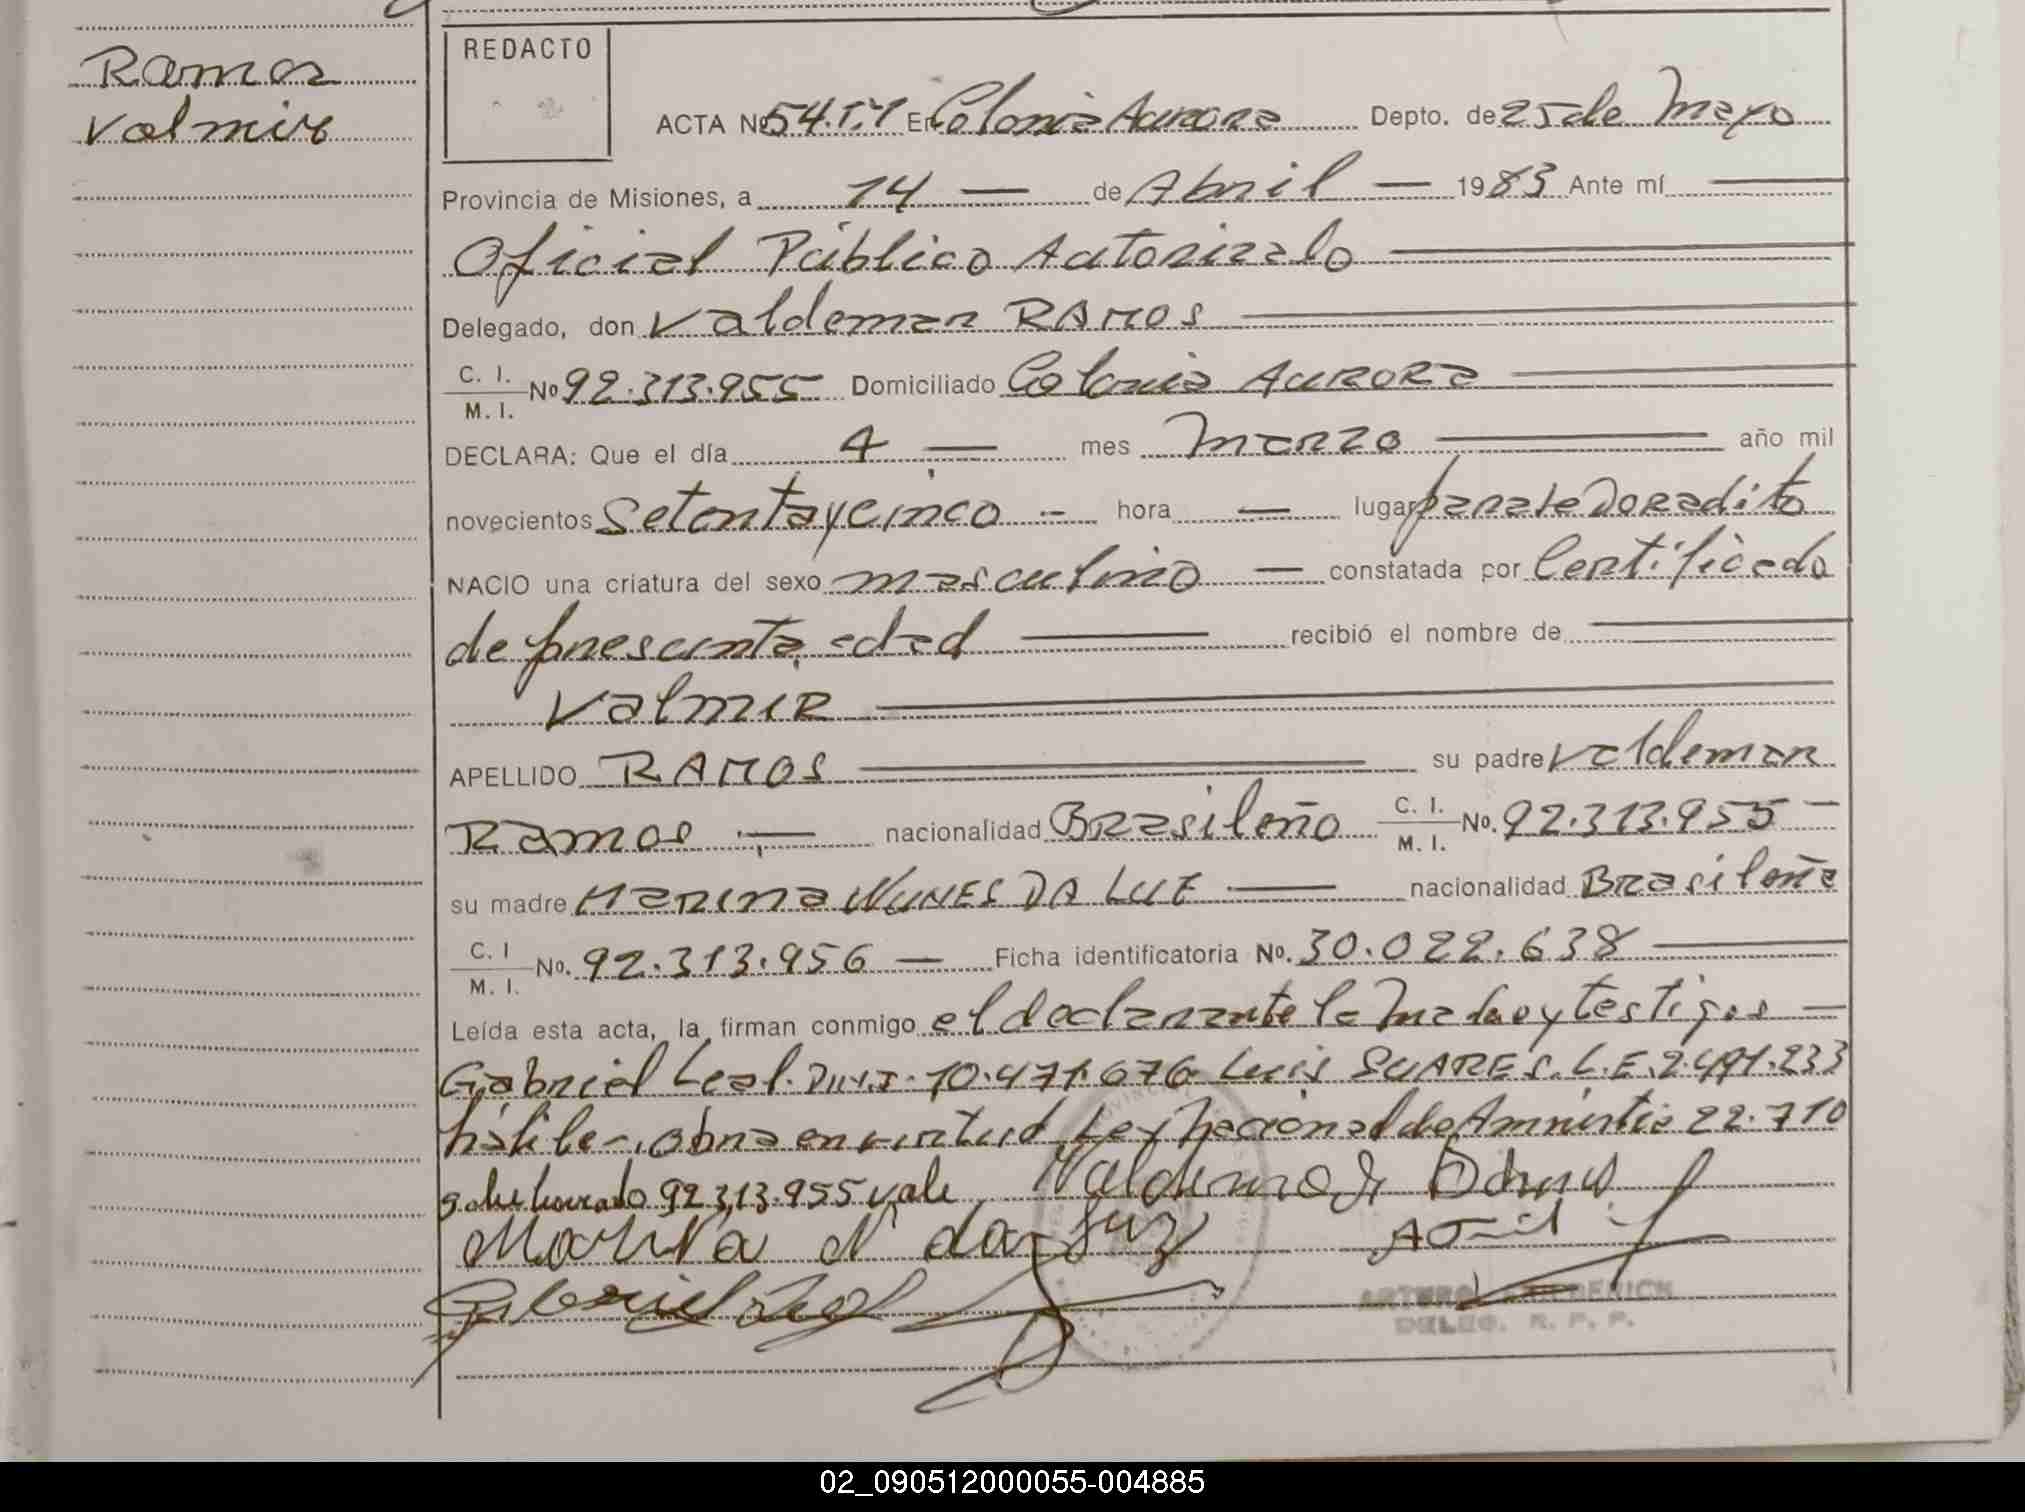 Ramos
Valmir
REDACTO
ACTA Nº 54.T:1 En Colonia Aurora Depto. de 25 de Mayo
Provincia de Misiones, a 14 — de Abril — 1983 Ante mí
Oficial Público Autorizado
Delegado, don Valdemar RAMOS
C. I. M. I. Nº 92.313.955 Domiciliado Colonia AURORA
DECLARA: Que el día 4 — mes Marzo año mil
novecientos Setentaycinco - hora — lugar paraje Doradito
NACIO una criatura del sexo masculino — constatada por Certificado
de presunta edad recibió el nombre de
ValmiR
APELLIDO RAMOS su padre Valdemar
Ramos nacionalidad Brasileño C. I. M. I. No. 92.313.955 -
su madre MARINA NUNES DA LUZ nacionalidad Brasileña
C. I M. I. No. 92.313.956 — Ficha identificatoria Nº. 30.022.638
Leída esta acta, la firman conmigo el declarante la madre y testigos —
Gabriel Leal. D.N.I. 10.471.676 Luis SUARES. L.E. 2.491.233
hábiles. obra en virtud Ley Nacional de Amnistia 22.710
sobre borrado 92313.955 vale
Marina N da Luz
Gabriel Leal
ARTURO FRIEDERICH
DELEG. R. P. P.
02_090512000055-004885